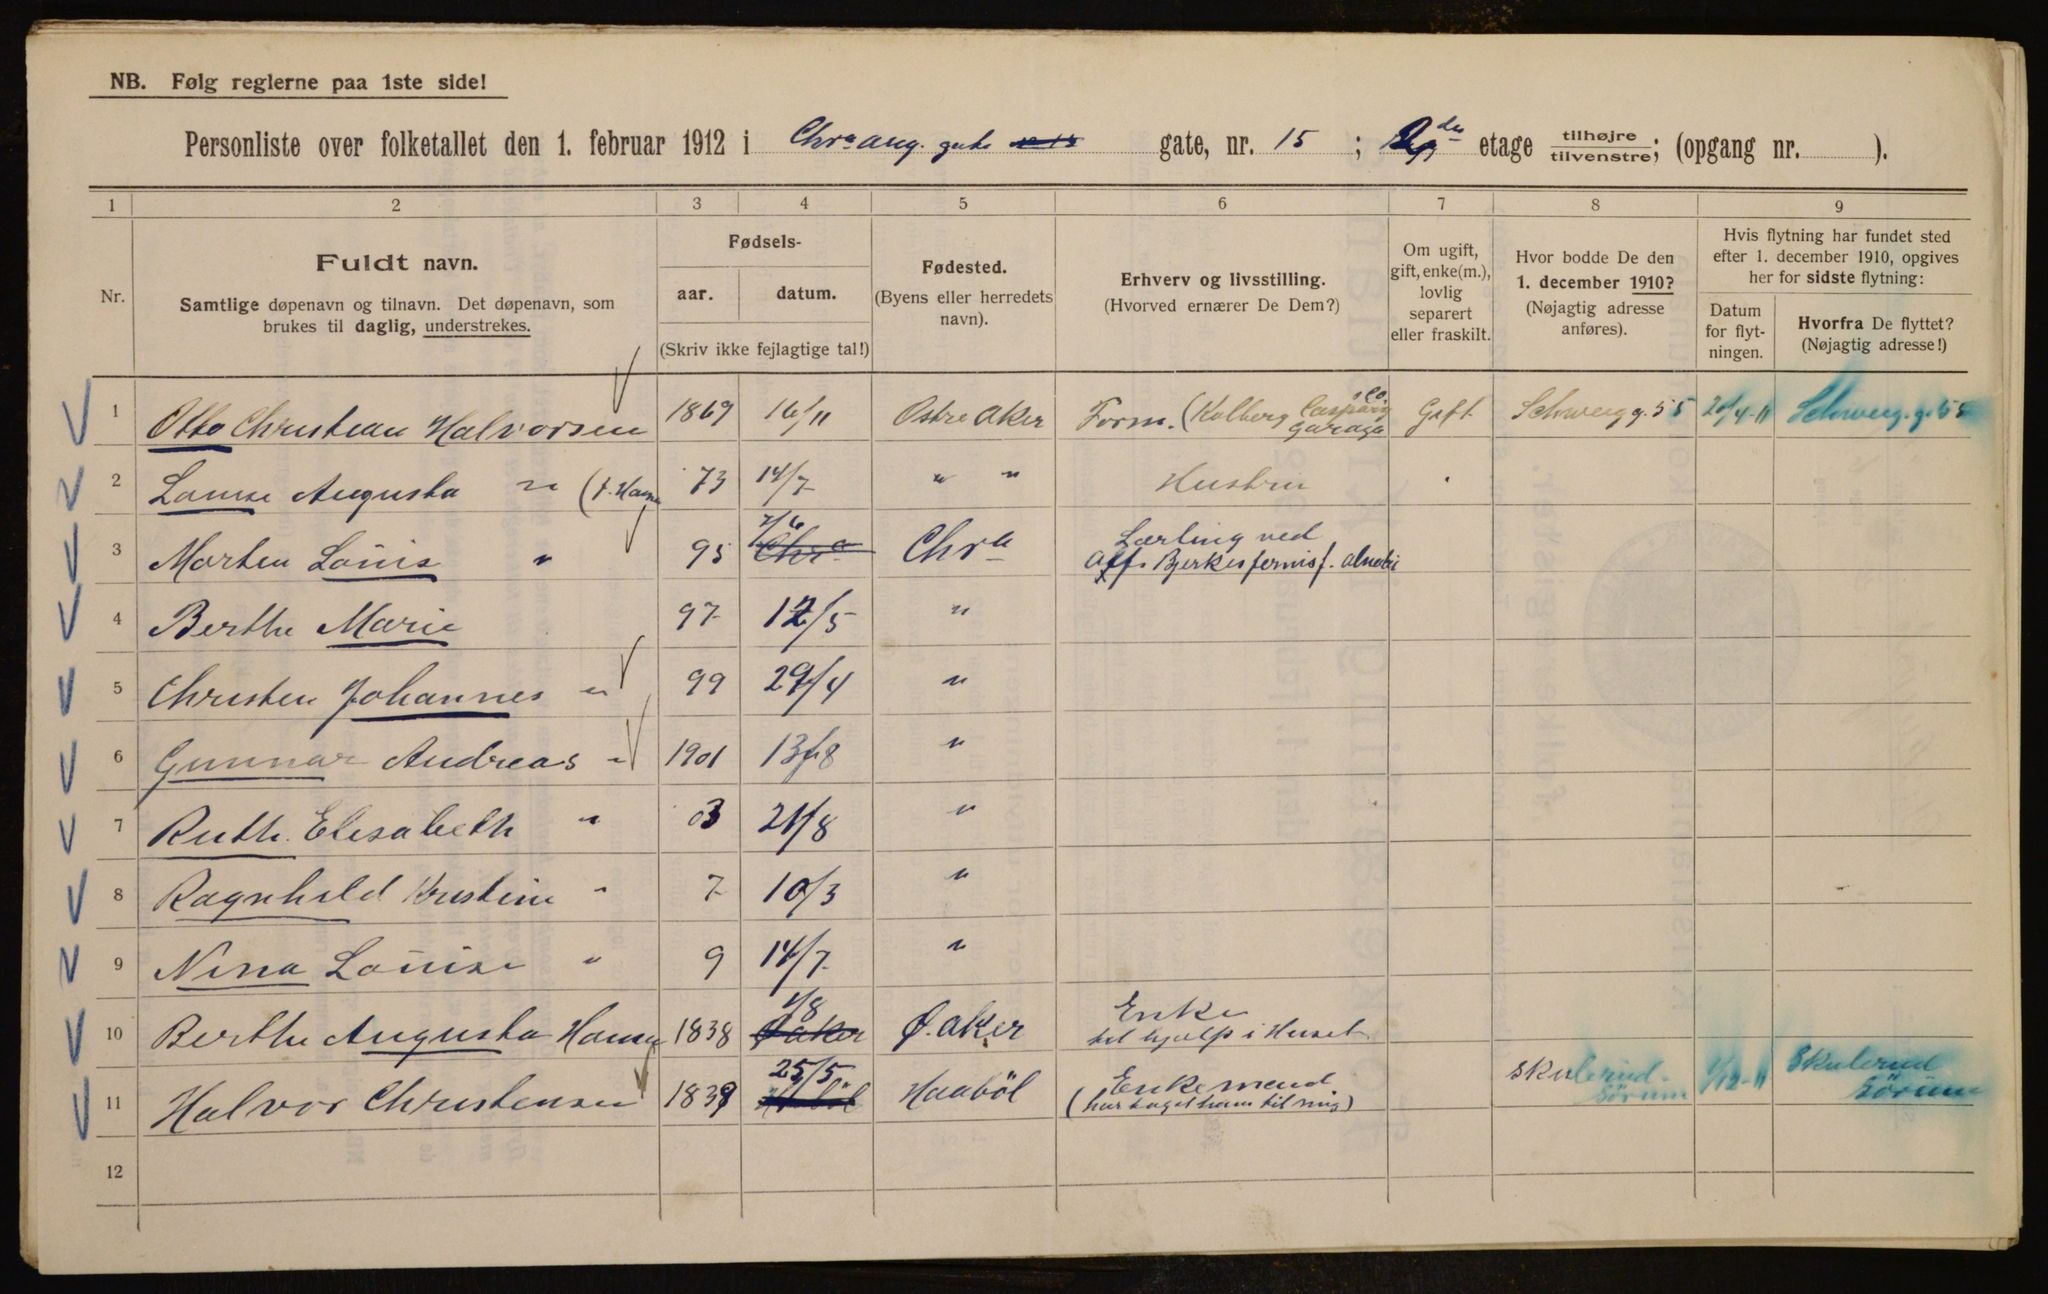 NB. Følg reglerne paa 1ste side!
Personliste over folketallet den 1. februar 1912 i Chr. aug. gate gate, nr. 15 ; etage tilhøjre/tilvenstre; (opgang nr. ).
1 2 3 4 5 6 7 8 9
Nr.
Fuldt navn.
Samtlige døpenavn og tilnavn. Det døpenavn, som
brukes til daglig, understrekes.
Fødsels-
aar. datum.
(Skriv ikke fejlagtige tal!)
Fødested.
(Byens eller herredets
navn).
Erhverv og livsstilling.
(Hvorved ernærer De Dem?)
Om ugift,
gift, enke(m.),
lovlig
separert
eller fraskilt.
Hvor bodde De den
1. december 1910?
(Nøjagtig adresse
anføres).
Hvis flytning har fundet sted
efter 1. december 1910, opgives
her for sidste flytning:
Datum
for flyt-
ningen.
Hvorfra De flyttet?
(Nøjagtig adresse!)
1 Otto Christian Halvorsen 1869 16/11 Østre Aker Form. (Kolberg Caspary & Co. garage Gift Schweig. g. 55 20/4-11 Schweig. g. 55
2 Louise Augusta " (f. Hansen 73 14/7 " " Hustru "
3 Morten Louis " 95 7/6 Chra Chra Lærling ved
Bjerkes fernisf.
4 Berthe Marie 97 12/5 "
5 Christen Johannes " 99 29/4 "
6 Gunnar Andreas " 1901 13/8 "
7 Ruth Elisabeth " 03 21/8 "
8 Ragnhild Kristine " 7 10/3 "
9 Nina Louise " 9 14/7 "
10 Berthe Augusta Hansen 1838 1/8 Ø aker Ø. aker Enke
til hjælp i Huset
11 Halvor Christensen 1839 25/5 Haabøl Haaböl Enkemand
(har taget ham til mig) Skulerud Sörum 1/12-11 Skulerud Sörum
12